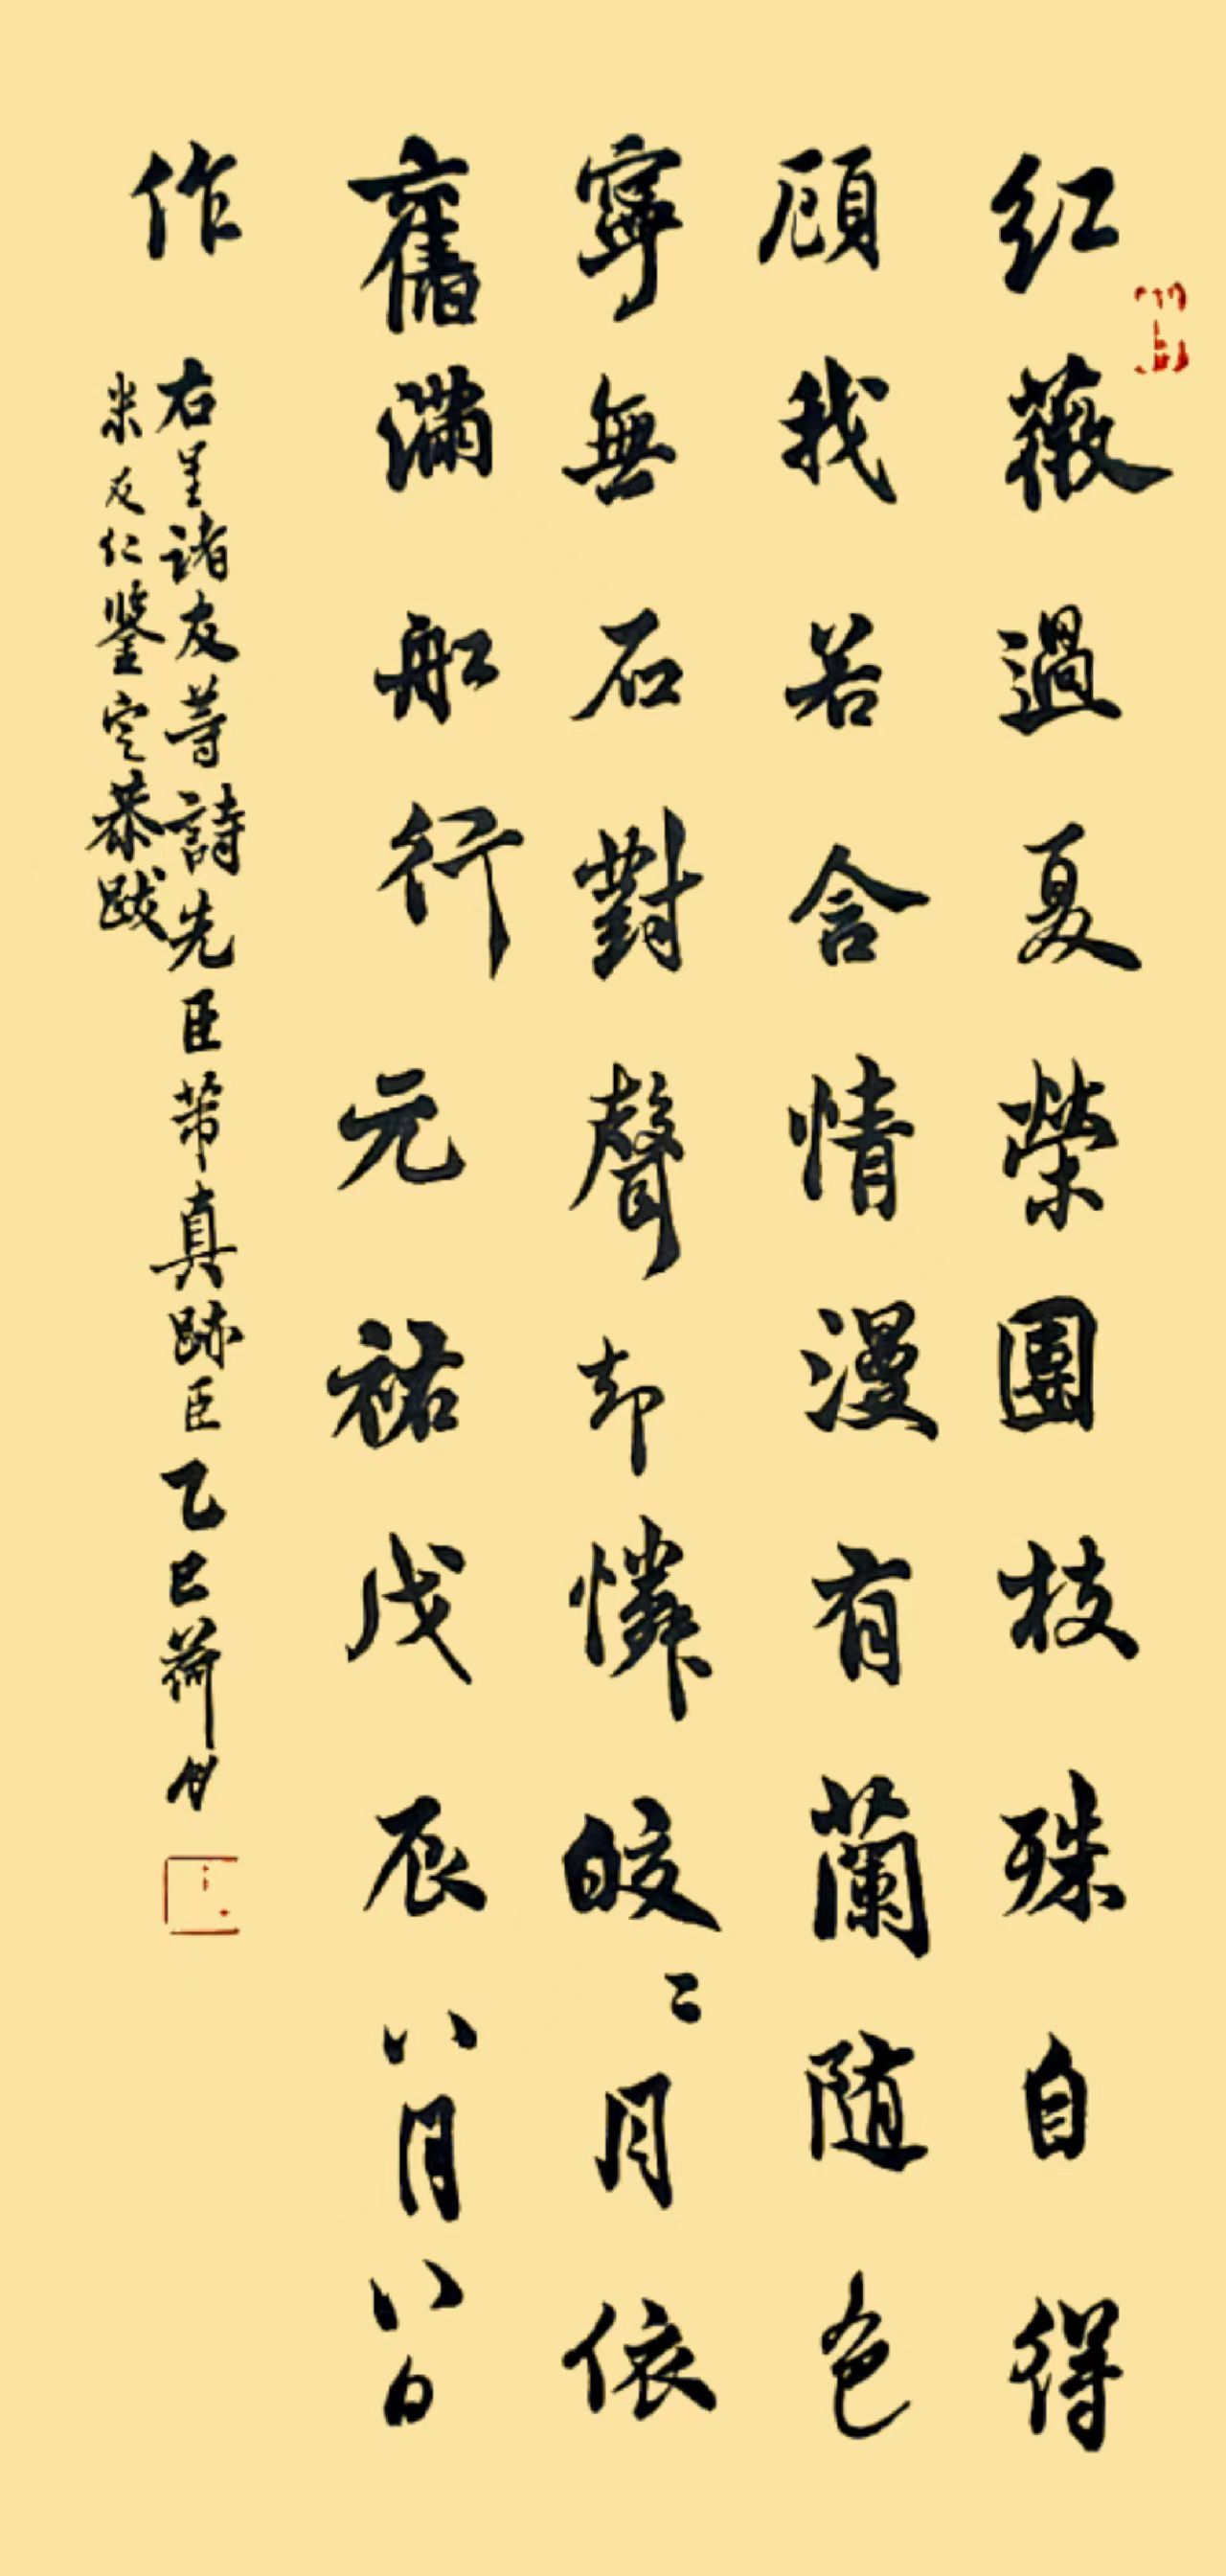 紅薇過夏榮團枝殊自得
顧我若含情漫有蘭隨色
寧無石對聲却憐皎〻月依
舊滿船行元祐戊辰八月八日
作
右呈諸友等詩先臣芾真跡臣乙巳荷月
米友仁鑒定恭跋